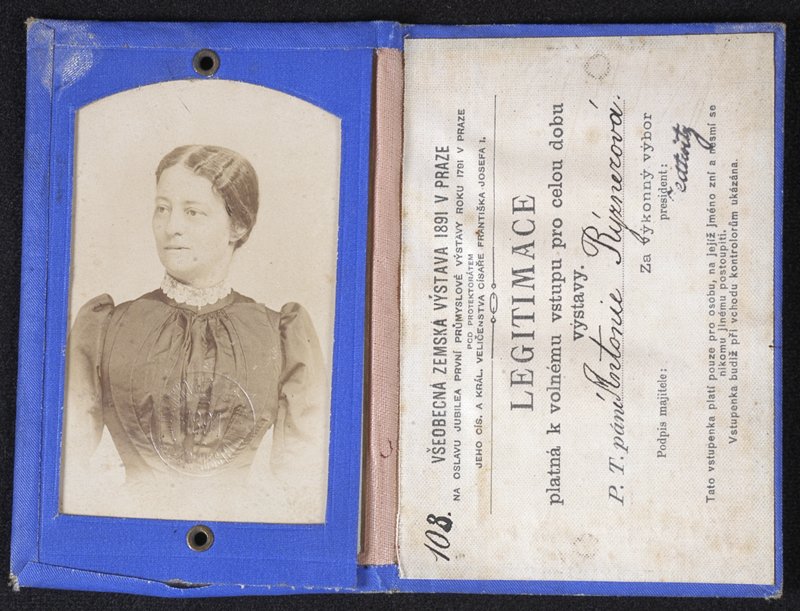 108.
VŠEOBECNÁ ZEMSKÁ VÝSTAVA 1891 V PRAZE
NA OSLAVU JUBILEA PRVNÍ PRŮMYSLOVÉ VÝSTAVY ROKU 1791 V PRÁZE
POD PROTEKTORÁTEM
JEHO CÍS. A KRÁL. VELIČENSTVA CÍSAŘE FRANTIŠKA JOSEFA I.
LEGITIMACE
platná k volnému vstupu pro celou dobu
výstavy.
P. T. paní Antonie Rýznerová.
Za výkonný výbor
Podpis majitele: president:
Tato vstupenka platí pouze pro osobu, na jejíž jméno zní a nesmí se
nikomu jinému postoupiti.
Vstupenka budiž při vchodu kontrolorům ukázána.